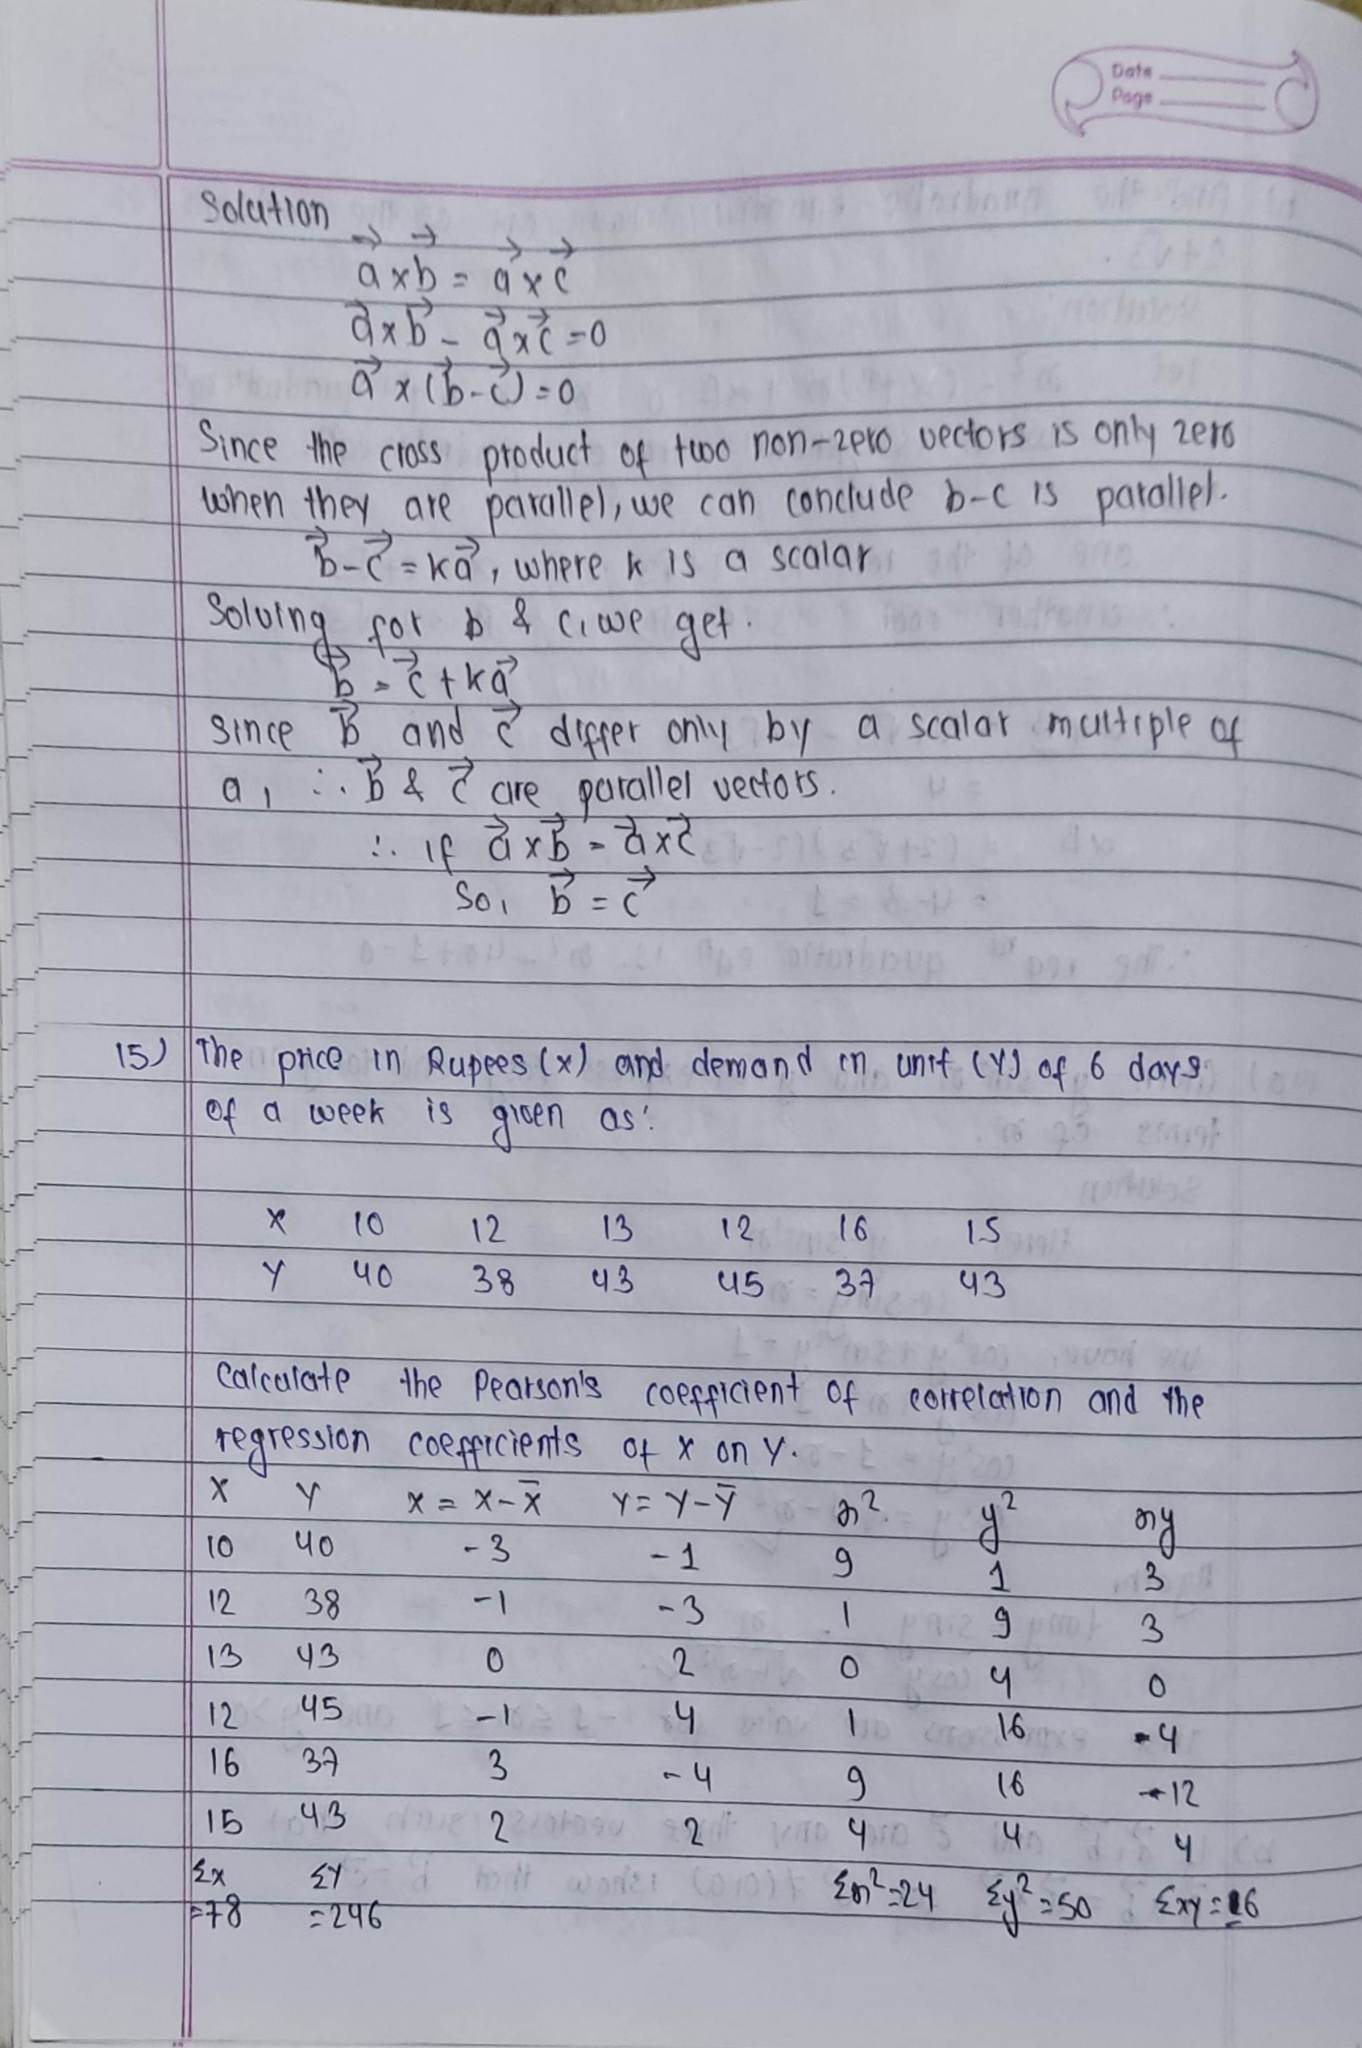 Date
Page
Solution
a⃗ x b⃗ = a⃗ x c⃗
a⃗ x b⃗ - a⃗ x c⃗ = 0
a⃗ x (b⃗ - c⃗) = 0
Since the cross product of two non-zero vectors is only zero
when they are parallel, we can conclude b-c is parallel.
b⃗ - c⃗ = ka⃗, where k is a scalar
Solving for b & c, we get.
b⃗ = c⃗ + ka⃗
Since b⃗ and c⃗ differ only by a scalar multiple of
a, ∴ b⃗ & c⃗ are parallel vectors.
∴ if a⃗ x b⃗ = a⃗ x c⃗
So, b⃗ = c⃗
15) The price in Rupees (x) and demand in unit (Y) of 6 days
of a week is given as:
X 10 12 13 12 16 15
Y 40 38 43 45 37 43
Calculate the Pearson's coefficient of correlation and the
regression coefficients of X on Y.
X Y x = X - X̄ Y = Y - Ȳ x² y² xy
10 40 -3 -1 9 1 3
12 38 -1 -3 1 9 3
13 43 0 2 0 4 0
12 45 -1 4 1 16 -4
16 37 3 -4 9 16 -12
15 43 2 2 4 4 4
Σx ΣY Σx² = 24 Σy² = 50 Σxy =
= 78 = 246